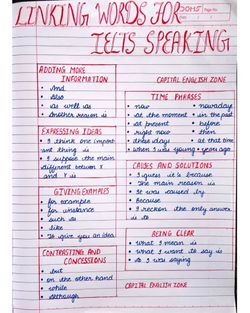 LINKING WORDS FOR
IELTS SPEAKING
ADDING MORE
INFORMATION
• And
• Also
• as well as
• Another reason is
EXPRESSING IDEAS
• I think one import
ant thing is
• I suppose the main
different between x
and y is
GIVING EXAMPLES
• for example
• for instance
• such as
• like
• To give you an idea
CONTRASTING AND
CONCESSIONS
• but
• on the other hand
• while
• although
CAPITAL ENGLISH ZONE
TIME PHRASES
• now • nowadays
• at the moment • in the past
• at present • before
• right now • then
• these days • at that time
• when I was young • years ago
CAUSES AND SOLUTIONS
• I guess it's because
• The main reason is
• It was caused by
• Because
• I reckon the only answer
is to
BEING CLEAR
• What I mean is
• What I want to say is
• As I was saying
CAPITAL ENGLISH ZONE